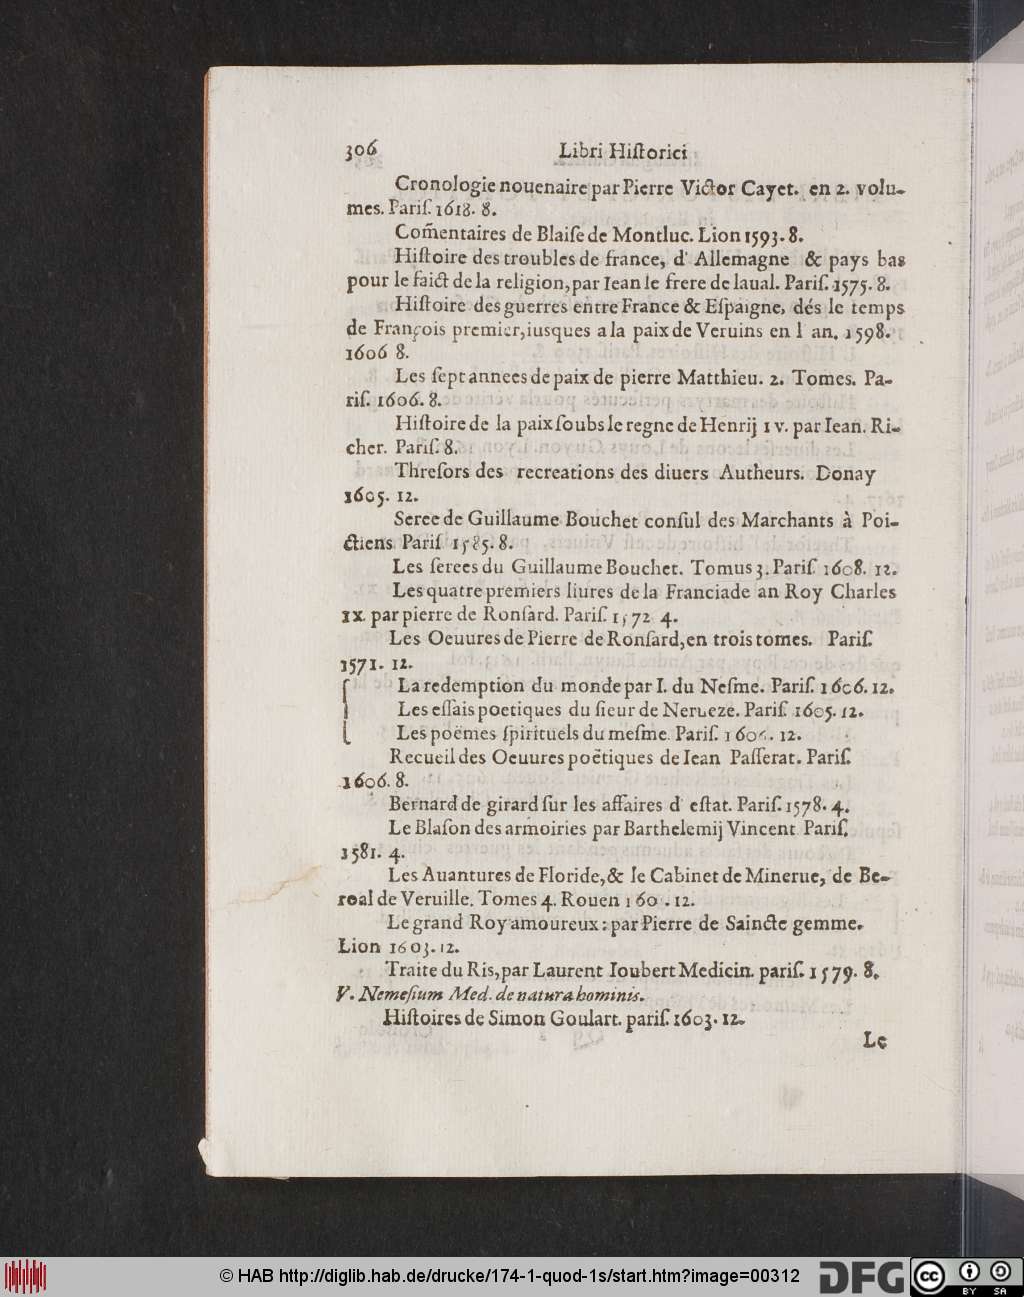 306 Libri Hiſtorici
Cronologie nouenaire par Pierre Victor Cayet. en 2. volu-
mes. Pariſ. 1618. 8.
Com̃entaires de Blaiſe de Montluc. Lion 1593. 8.
Hiſtoire des troubles de france, d' Allemagne & pays bas
pour le faict de la religion, par Iean le frere de laual. Pariſ. 1575. 8.
Hiſtoire des guerres entre France & Eſpaigne, dés le temps
de François premier, iusques a la paix de Veruins en l an. 1598.
1606 8.
Les ſept annees de paix de pierre Matthieu. 2. Tomes. Pa-
riſ. 1606. 8.
Hiſtoire de la paix ſoubs le regne de Henrij IV. par Iean. Ri-
cher. Pariſ. 8.
Threſors des recreations des diuers Autheurs. Donay
1605. 12.
Seree de Guillaume Bouchet conſul des Marchants à Poi-
ctiens Pariſ 1585. 8.
Les ſerees du Guillaume Bouchet. Tomus 3. Pariſ. 1608. 12.
Les quatre premiers liures de la Franciade an Roy Charles
IX. par pierre de Ronſard. Pariſ. 1572 4.
Les Oeuures de Pierre de Ronſard, en trois tomes. Pariſ.
1571. 12.
La redemption du monde par I. du Neſme. Pariſ. 1606. 12.
Les eſſais poetiques du ſieur de Nerueze. Pariſ. 1605. 12.
Les poëmes ſpirituels du meſme. Pariſ. 12.
Recueil des Oeuures poëtiques de Iean Paſſerat. Pariſ.
1606. 8.
Bernard de girard ſur les affaires d' eſtat. Pariſ. 1578. 4.
Le Blaſon des armoiries par Barthelemij Vincent Pariſ.
1581. 4.
Les Auantures de Floride, & le Cabinet de Minerue, de Be-
roal de Veruille. Tomes 4. Rouen 160 . 12.
Le grand Roy amoureux: par Pierre de Saincte gemme.
Lion 1603. 12.
Traite du Ris, par Laurent Ioubert Medicin. pariſ. 1579. 8.
V. Nemeſium Med. de natura hominis.
Hiſtoires de Simon Goulart. pariſ. 1603. 12.
Le
© HAB http://diglib.hab.de/drucke/174-1-quod-1s/start.htm?image=00312 DFG cc BY SA